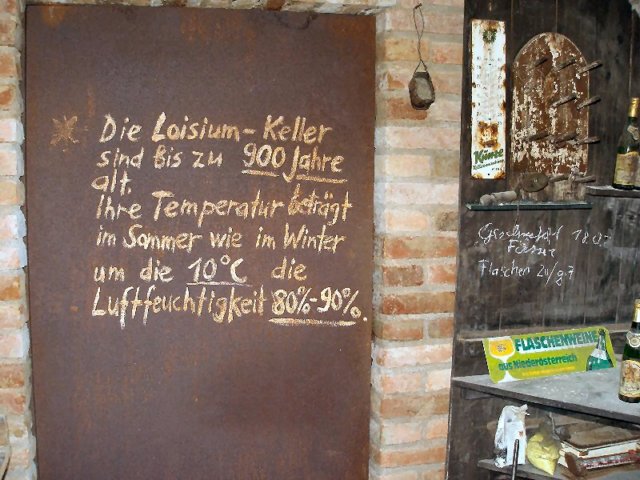 Die Loisium-Keller
sind Bis zu 900 Jahre
alt.
Ihre Temperatur beträgt
im Sommer wie im Winter
um die 10°C die
Luftfeuchtigkeit 80%-90%.
Flaschen
FLASCHENWEINE
aus Niederösterreich